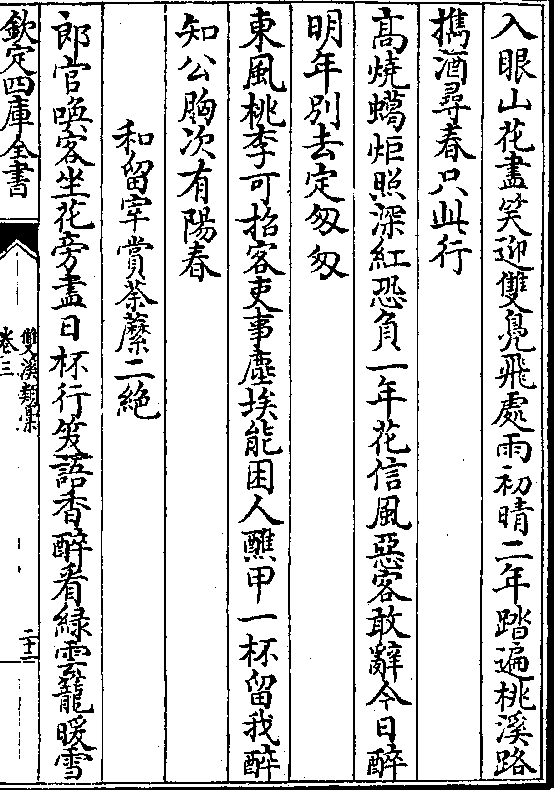 入眼山花盡笑迎雙鳬飛處雨初晴二年踏遍桃溪路
攜酒尋春只此行
高燒蠟炬照深紅恐負一年花信風惡客敢辭今日醉
明年别去定匆匆
東風桃李可招客吏事塵埃能困人醮甲一杯留我醉
知公胸次有陽春
和留宰賞荼蘼二絶
郎官喚客坐花旁盡日杯行笑語香醉看緑雲籠暖雪
欽定四庫全書
雙溪類藁
卷三
二十三